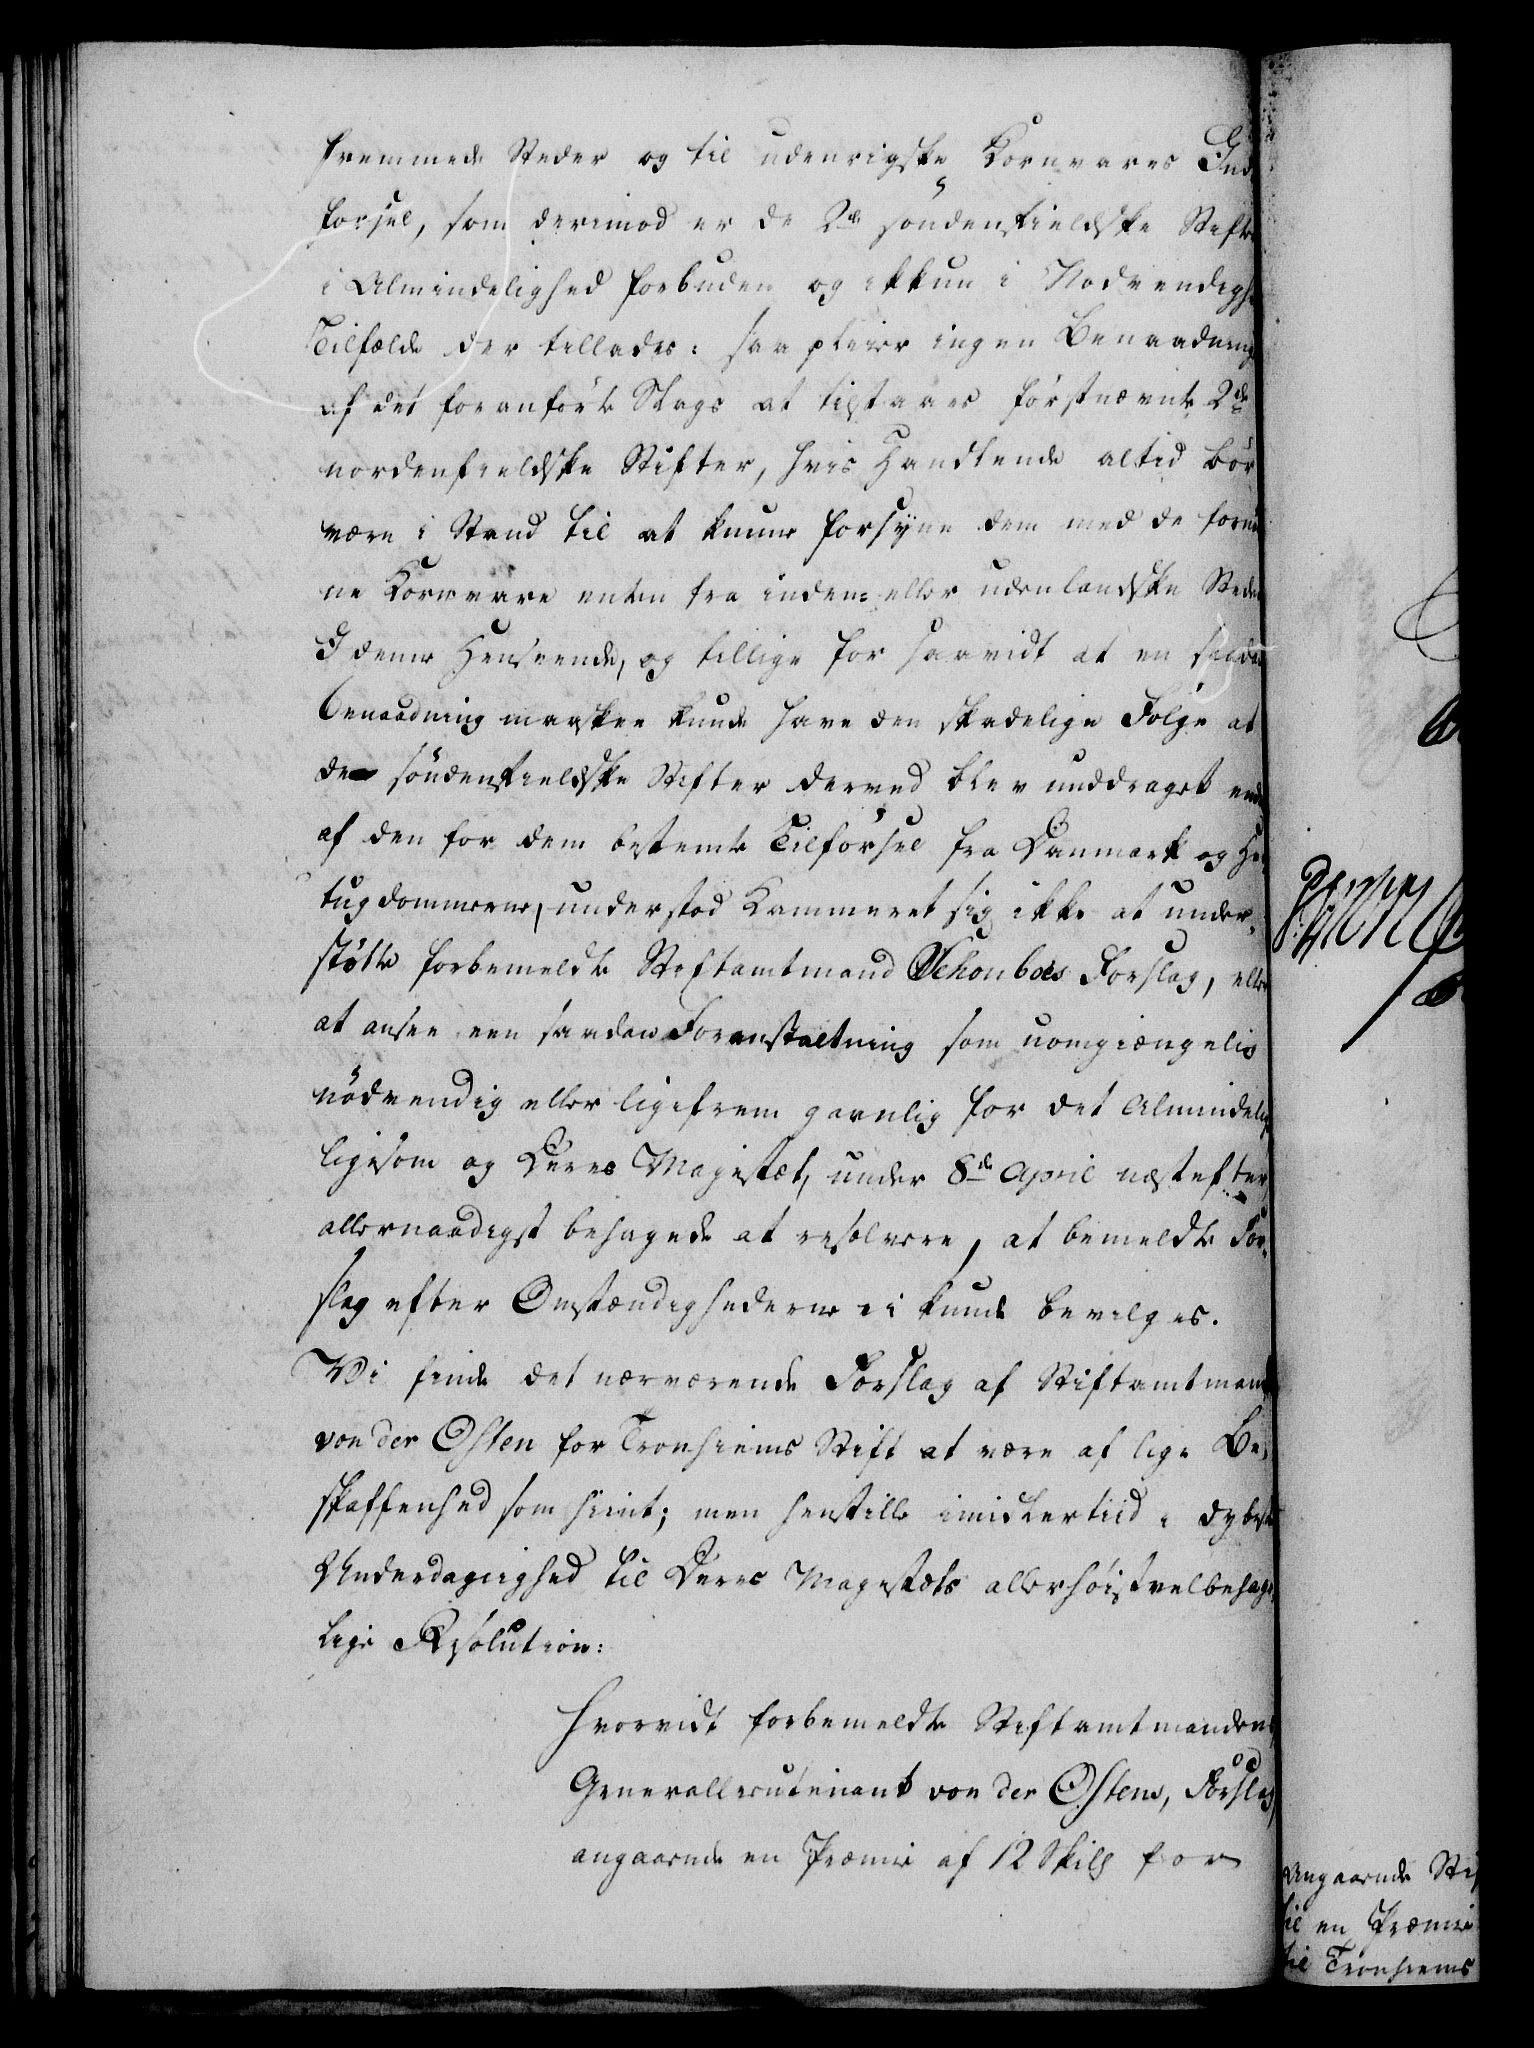 fremmede Steder og til udenrigske Kornvares Ind-
forsel, som derimod er de 2de söndenfieldske Stifter
i Almindelighed forbuden og ikkun i Nodvendigheds
Tilfælde der tillades: saa pleier ingen Benaadning
af det foranförte Slags at tilstaaes förstnævnte 2de
nordenfieldske Stifter, hvis Handlende altid bör
være i Stand til at kunne forsÿne dem med de fornød
ne Kornvare enten fra inden- eller udenlandske Steder
I denne Henseende, og tillige for saavidt at en saadan
benaadning maaskee kunde have den skadelige Fölge at
de söndenfieldske Stifter derved blev unddraget endeel
af den for dem bestemte Tilförsel fra Danmark og Her
tugdommerne, understod Kammeret sig ikke at under-
støtte forbemeldte Stiftamtmand Schouboes Forslag, eller
at ansee een saadan Foranstaltning som uomgiængelig
nödvendig eller ligefrem gavnlig for det Almindelige
ligesom og Deres Majestæt, under 8de April næstefter
allernaadigst behagede at resolvere, at bemeldte For-
slag efter Omstændighederne ei kunde bevilges.
Vi finde det nærværende Forslag af Stiftamtmand
von der Osten for Tronhiems Stift at være af lige Be-
skaffenhed som hiint; men henstille imidlertiid i dybeste
Underdanighed til Deres Majestæts allerhöistvelbehage-
lige Resolution:
Hvorvidt forbemeldte Stiftamtmandens
Generallieutenant von der Ostens, Forslag,
angaaende en Præmie af 12 Skill for
Angaaende Stif
til en Præmie
til Tronhiems